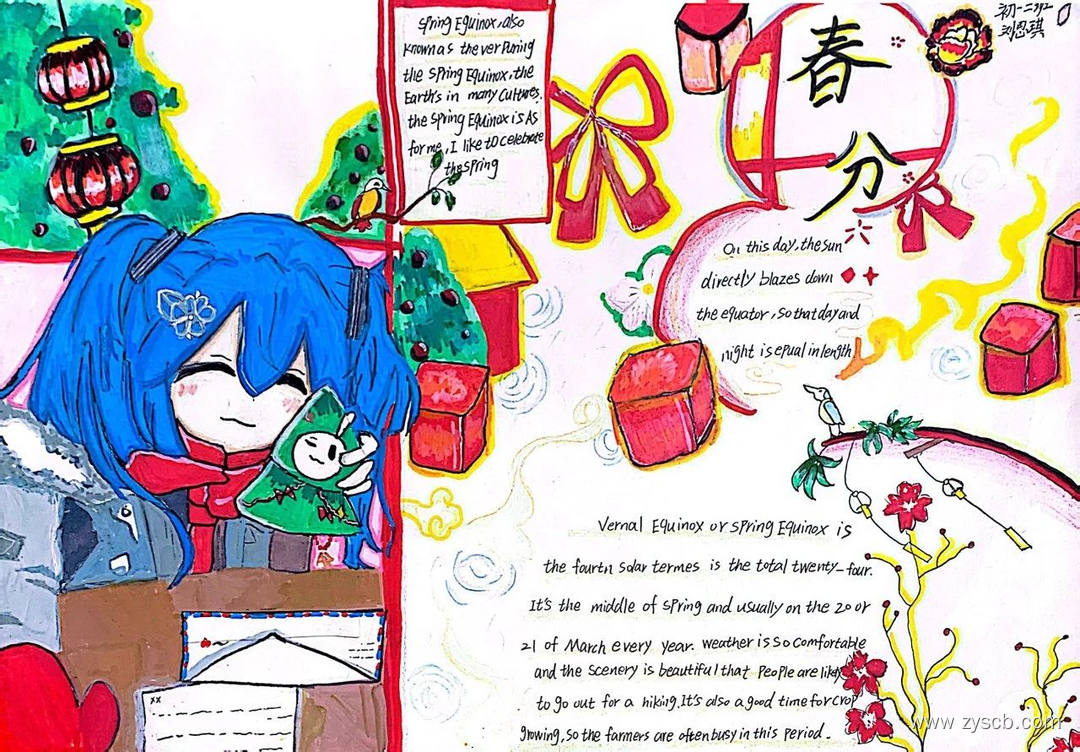 Spring Equinox, also
known as the ver Puning
the Spring Equinox, the
Earth's in many Cultures.
the Spring Equinox is As
for me, I like to celebrate
the spring
春
分
初一二班
刘思琪
On this day, the sun
directly blazes down
the equator, so that day and
night is epual in length
Vernal Equinox or spring Equinox is
the fourtn solar termes is the total twenty-four.
It's the middle of spring and usually on the 20 or
21 of March every year. weather is so comfortable
and the scenery is beautiful that People are likely
to go out for a hiking. It's also a good time for crop
growing, so the farmers are often busy in this period.
xx
www.zyscb.com